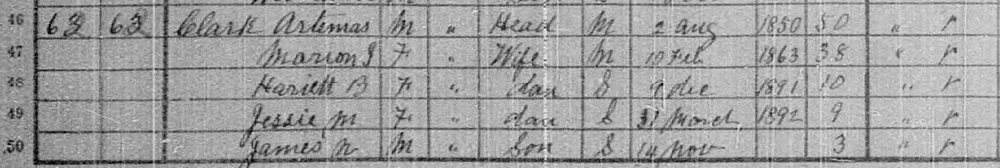 46 63 63 Clark Artemas M " Head M 2 aug 1850 50 " r
47 Marion J F " Wife M 10 Feb 1863 38 " r
48 Hariett B F " dau S 9 dec 1891 10 " r
49 Jessie M F " dau S 31 March 1892 9 " r
50 James N M " Son S 14 Nov 3 " r